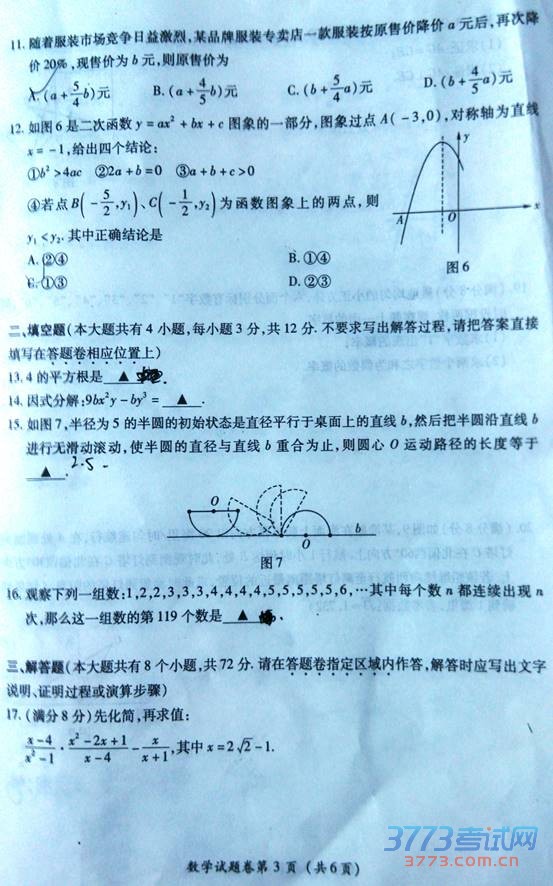 11. 随着服装市场竞争日益激烈,某品牌服装专卖店一款服装按原售价降价 a 元后,再次降
价 20%,现售价为 b 元,则原售价为
A. (a + 5/4 b)元 B. (a + 4/5 b)元 C. (b + 5/4 a)元 D. (b + 4/5 a)元
12. 如图 6 是二次函数 y = ax² + bx + c 图象的一部分,图象过点 A( -3,0),对称轴为直线
x = -1,给出四个结论:
①b² > 4ac ②2a + b = 0 ③a + b + c > 0
④若点 B( - 5/2 ,y₁)、C( - 1/2 ,y₂) 为函数图象上的两点,则
y₁ < y₂. 其中正确结论是
A. ②④ B. ①④
C. ①③ D. ②③
y
A O x
图 6
二、填空题(本大题共有 4 小题,每小题 3 分,共 12 分. 不要求写出解答过程,请把答案直接
填写在答题卷相应位置上)
13. 4 的平方根是 ▲
14. 因式分解:9bx²y - by³ = ▲ .
15. 如图 7,半径为 5 的半圆的初始状态是直径平行于桌面上的直线 b,然后把半圆沿直线 b
进行无滑动滚动,使半圆的直径与直线 b 重合为止,则圆心 O 运动路径的长度等于
▲ . 2.5
O O b
图 7
16. 观察下列一组数:1,2,2,3,3,3,4,4,4,4,5,5,5,5,5,6,…其中每个数 n 都连续出现 n
次,那么这一组数的第 119 个数是 ▲ .
三、解答题(本大题共有 8 个小题,共 72 分. 请在答题卷指定区域内作答,解答时应写出文字
说明、证明过程或演算步骤)
17. (满分 8 分)先化简,再求值:
(x-4)/(x²-1) · (x²-2x+1)/(x-4) - x/(x+1) ,其中 x = 2√2 - 1.
数学试题卷第 3 页 (共 6 页)
3773考试网
3773.com.cn